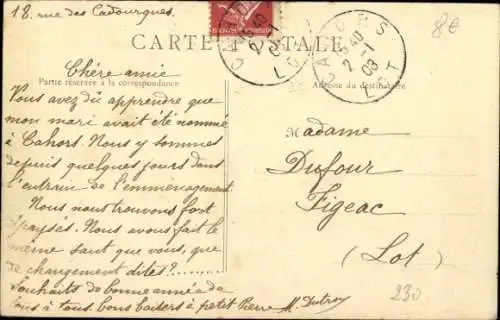 18. rue des Cadourques
8€
CARTE POSTALE
CAHORS
LOT
5 40
2 - 1
08
Partie réservée à la correspondance
Adresse du destinataire
Chère amie
Vous avez dû apprendre que
mon mari avait été nommé
à Cahors. Nous y sommes
depuis quelques jours dans
l'entrain de l'emménagement
Nous nous trouvons fort
dépaysés. Nous avons fait le
même saut que vous, que
de changement dites?
Souhaits de bonne année de
tous à tous. Bons baisers à petit Pierre M. Dutroy
Madame
Dufour
Figeac
(Lot)
230